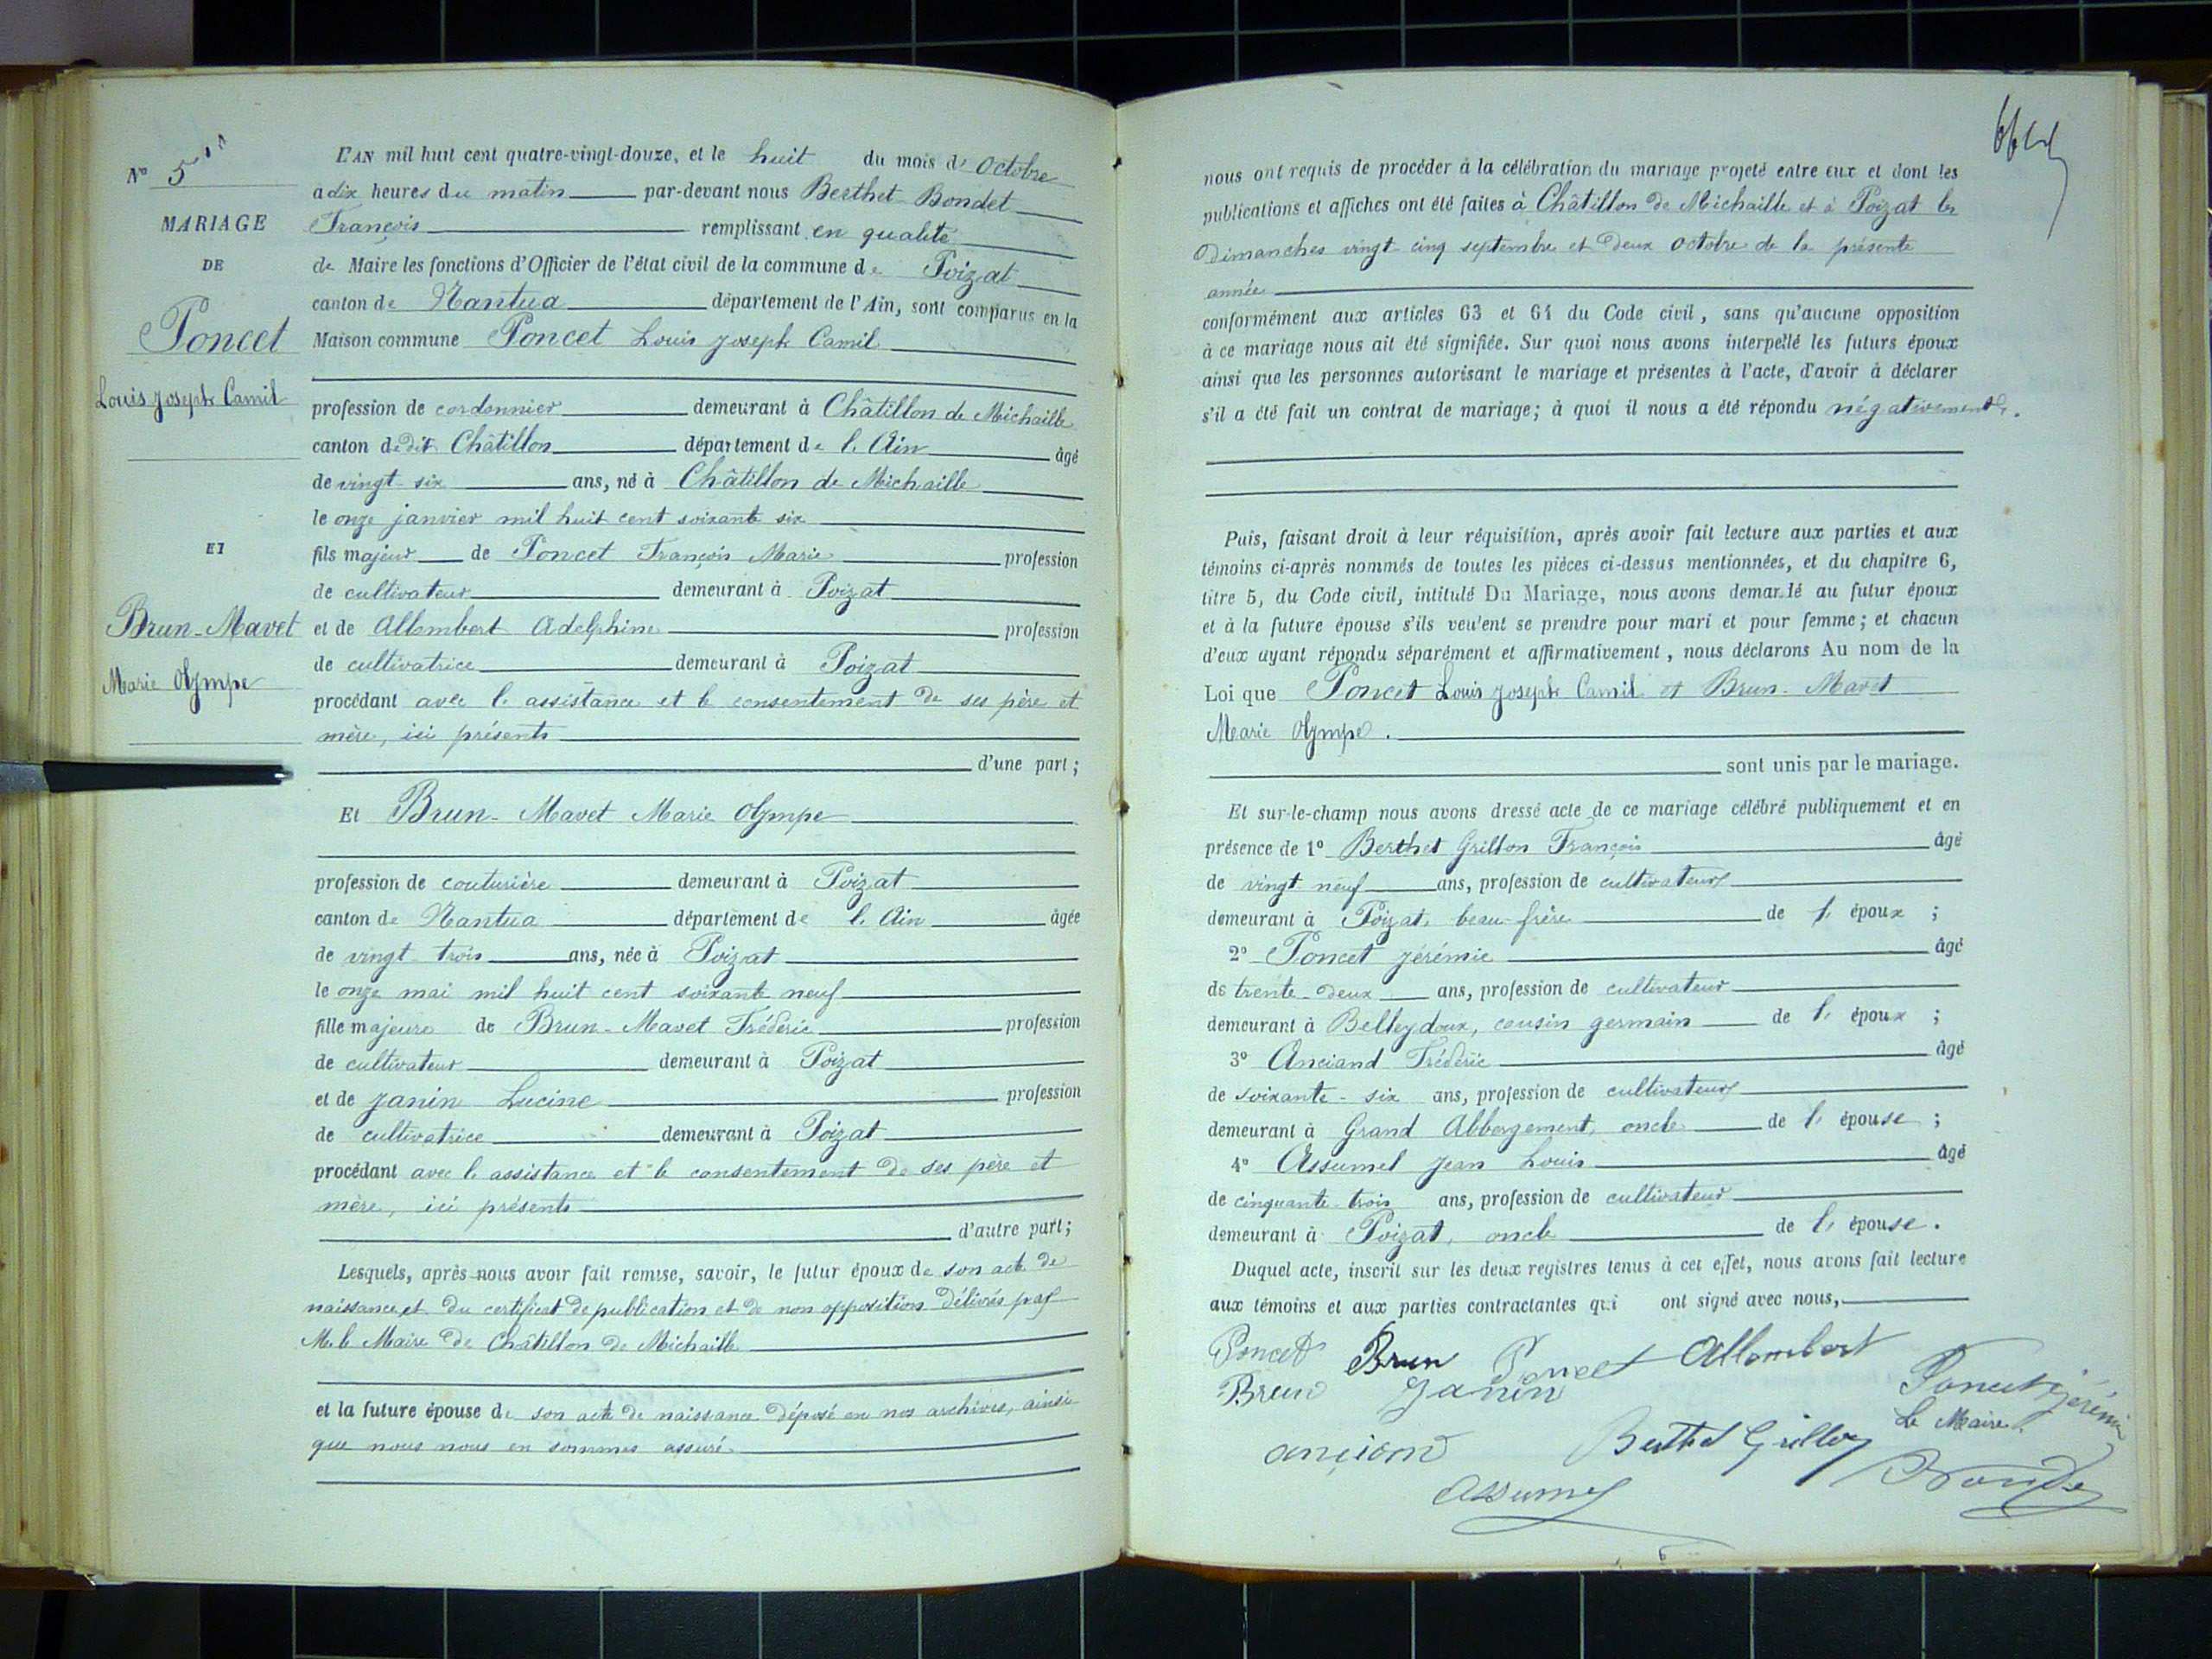 N° 5
MARIAGE
DE
Poncet
Louis Joseph Camil
ET
Brun-Mavet
Marie Olympe
L'AN mil huit cent quatre-vingt-douze, et le huit du mois d' Octobre
a dix heures du matin par-devant nous Berthet-Bondet
François remplissant en qualité
de Maire les fonctions d'Officier de l'état civil de la commune de Poizat
canton de Nantua département de l'Ain, sont comparus en la
Maison commune Poncet Louis Joseph Camil
profession de cordonnier demeurant à Châtillon de Michaille
canton de dit Châtillon département de l'Ain âgé
de vingt-six ans, né à Châtillon de Michaille
le onze janvier mil huit cent soixante six
fils majeur de Poncet François Marie profession
de cultivateur demeurant à Poizat
et de Allombert Adelphine profession
de cultivatrice demeurant à Poizat
procédant avec l'assistance et le consentement de ses père et
mère, ici présents
d'une part;
Et Brun-Mavet Marie Olympe
profession de couturière demeurant à Poizat
canton de Nantua département de l'Ain âgée
de vingt trois ans, née à Poizat
le onze mai mil huit cent soixante neuf
fille majeure de Brun-Mavet Frédéric profession
de cultivateur demeurant à Poizat
et de Janin Lucine profession
de cultivatrice demeurant à Poizat
procédant avec l'assistance et le consentement de ses père et
mère, ici présents
d'autre part;
Lesquels, après nous avoir fait remise, savoir, le futur époux de son acte de
naissance et du certificat de publication et de non opposition délivrés par
M. le Maire de Châtillon de Michaille
et la future épouse de son acte de naissance déposé en nos archives, ainsi
que nous nous en sommes assuré
nous ont requis de procéder à la célébration du mariage projeté entre eux et dont les
publications et affiches ont été faites à Châtillon de Michaille et à Poizat les
Dimanches vingt-cinq septembre et deux octobre de la présente
année
conformément aux articles 63 et 64 du Code civil, sans qu'aucune opposition
à ce mariage nous ait été signifiée. Sur quoi nous avons interpellé les futurs époux
ainsi que les personnes autorisant le mariage et présentes à l'acte, d'avoir à déclarer
s'il a été fait un contrat de mariage; à quoi il nous a été répondu négativement.
Puis, faisant droit à leur réquisition, après avoir fait lecture aux parties et aux
témoins ci-après nommés de toutes les pièces ci-dessus mentionnées, et du chapitre 6,
titre 5, du Code civil, intitulé Du Mariage, nous avons demandé au futur époux
et à la future épouse s'ils veulent se prendre pour mari et pour femme; et chacun
d'eux ayant répondu séparément et affirmativement, nous déclarons Au nom de la
Loi que Poncet Louis Joseph Camil et Brun-Mavet
Marie Olympe.
sont unis par le mariage.
Et sur-le-champ nous avons dressé acte de ce mariage célébré publiquement et en
présence de 1° Berthet Grillon François âgé
de vingt neuf ans, profession de cultivateur
demeurant à Poizat, beau-frère de l'époux;
2° Poncet Jérémie âgé
de trente-deux ans, profession de cultivateur
demeurant à Belleydoux, cousin germain de l'époux;
3° Anciand Frédéric âgé
de soixante-six ans, profession de cultivateur
demeurant à Grand Abbergement, oncle de l'épouse;
4° Assumel Jean Louis âgé
de cinquante-trois ans, profession de cultivateur
demeurant à Poizat, oncle de l'épouse.
Duquel acte, inscrit sur les deux registres tenus à cet effet, nous avons fait lecture
aux témoins et aux parties contractantes qui ont signé avec nous,
Poncet Brun Poncet Allombert
Brun Janin Poncet jérémie
Le Maire
anciand Berthet Grillon Bondet
Assumel